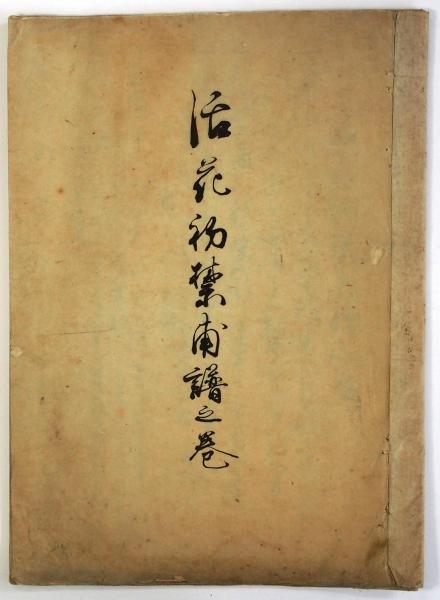 活花初禁甫譜之巻